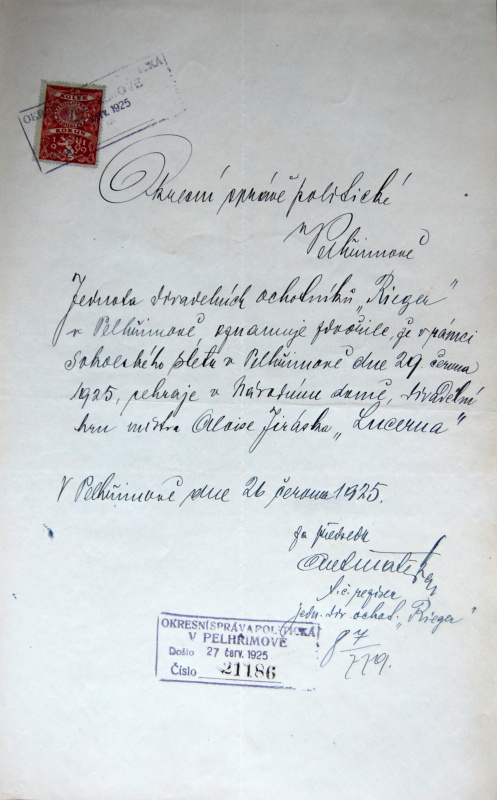 KOLEK
KORUN
1919
OKRESNÍ
POLITICKÁ
červ. 1925
Okresní správě politické
v Pelhřimově
Jednota divadelních ochotníků „Rieger"
v Pelhřimově oznamuje zdvořile, že v rámci
sokolského sletu v Pelhřimově dne 29 června
1925, sehraje v Národním domě, divadelní
hru mistra Aloise Jiráska „Lucerna"
V Pelhřimově dne 26 června 1925.
za předsedu
t. č. režiser
jedn. div ochot. „Rieger"
OKRESNÍ SPRÁVA POLITICKÁ
V PELHŘIMOVĚ
Došlo 27 červ. 1925
Číslo 21186